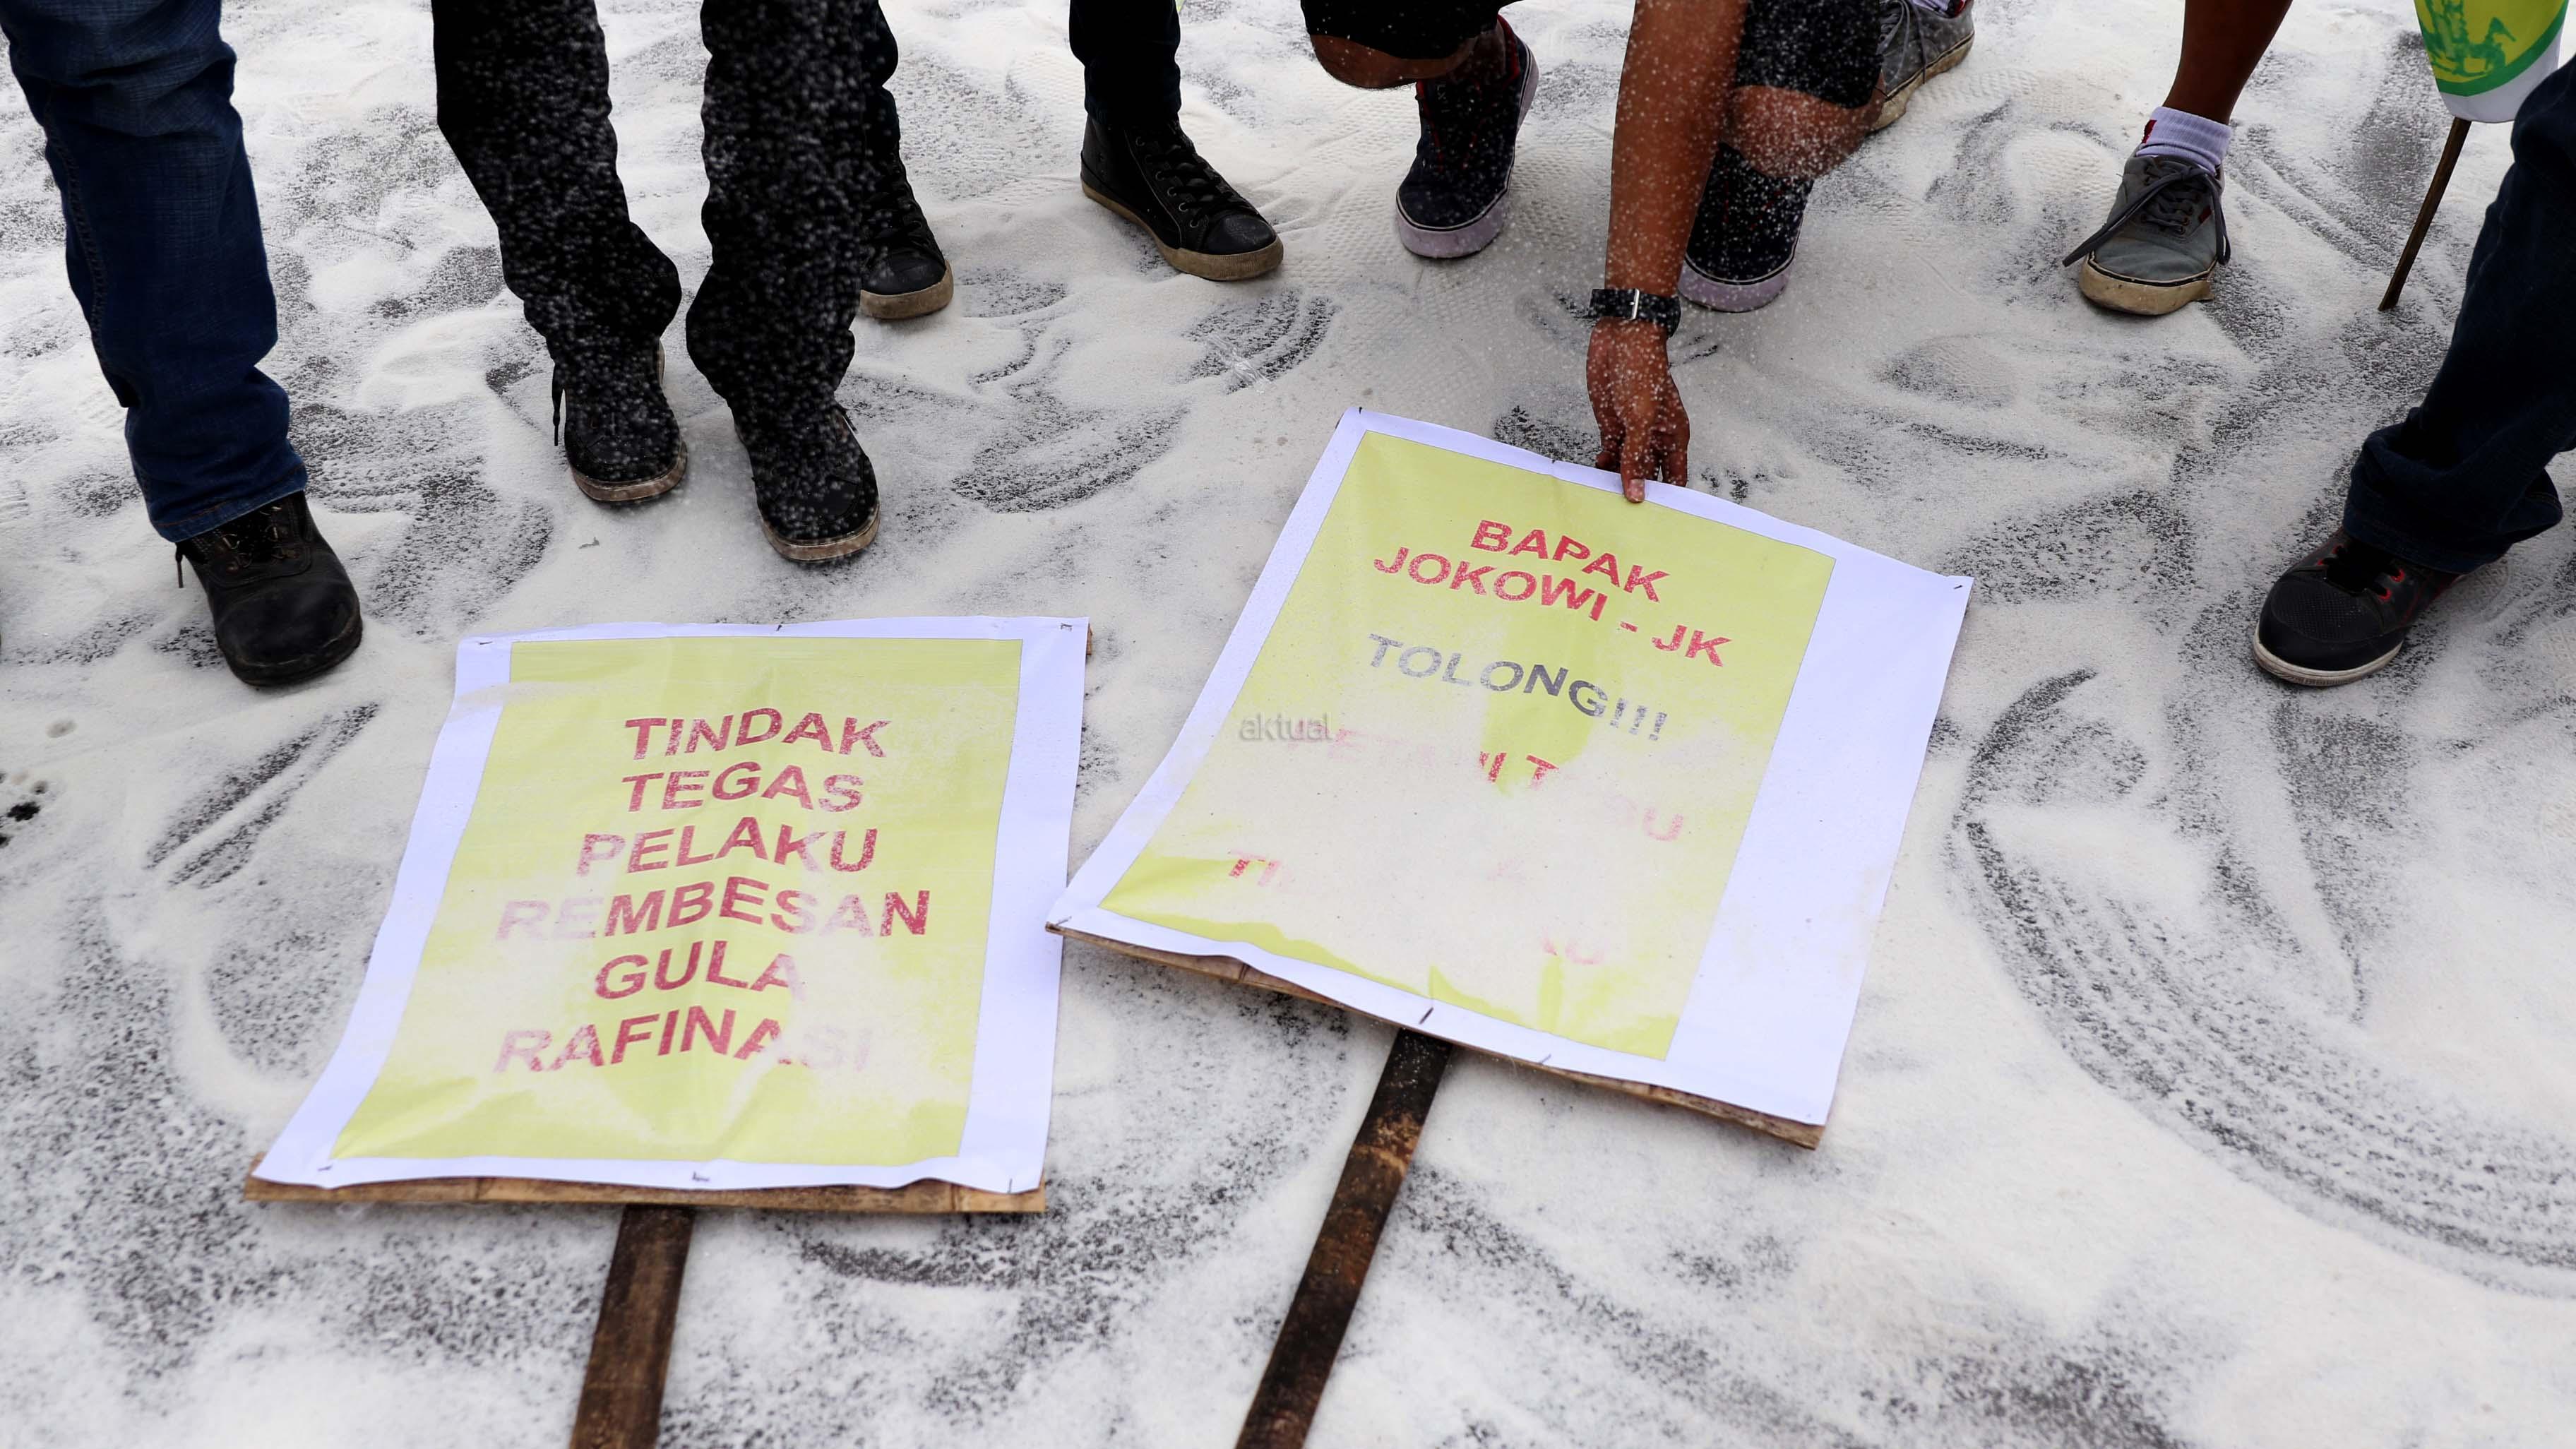 TINDAK
TEGAS
PELAKU
REMBESAN
GULA
RAFINASI
BAPAK
JOKOWI - JK
TOLONG!!!
aktual